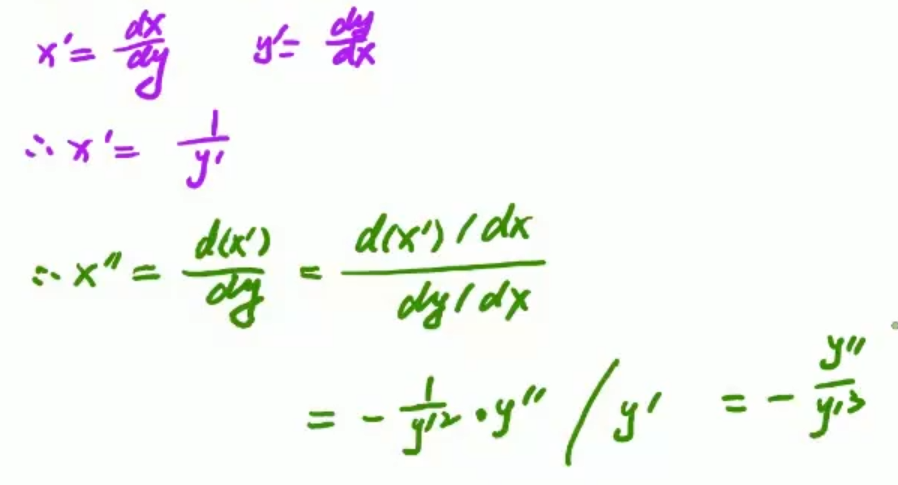 x' = dx/dy y' = dy/dx
∴ x' = 1/y'
∴ x'' = d(x')/dy = d(x')/dx / dy/dx
= - 1/y'² · y'' / y' = - y''/y'³